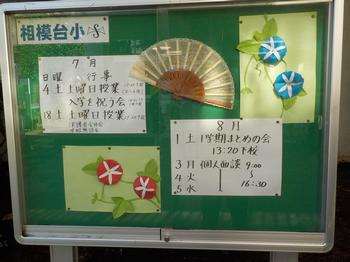 相模台小
7月
日曜 行事
4土 土曜日授業
入学を祝う会
18土 土曜日授業
8月
1土 1学期まとめの会
13:20下校
3月 個人面談 9:00
4火 〜
5水 16:30